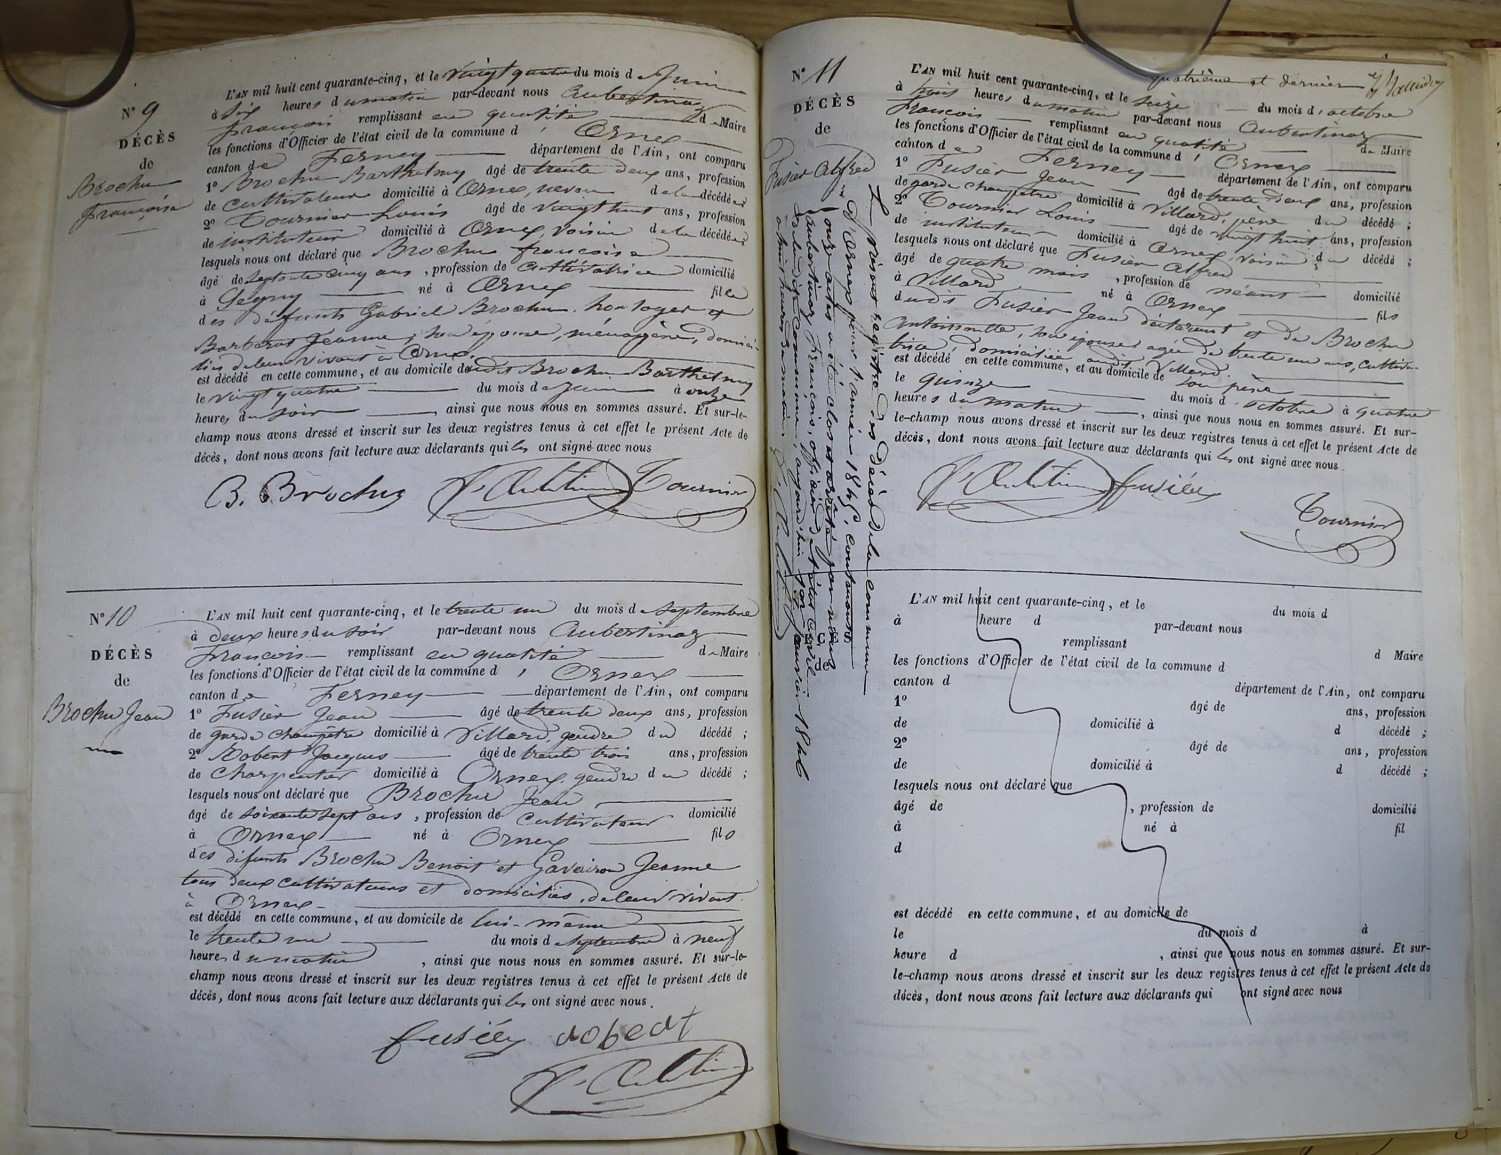 N° 9
DÉCÈS
de
Brochu
françoise
L'AN mil huit cent quarante-cinq, et le vingt quatre du mois de Juin
à Six heures du matin par-devant nous Aubertinaz
françois remplissant en qualité de Maire
les fonctions d'Officier de l'état civil de la commune d' Ornex
canton de Ferney département de l'Ain, ont comparu
1° Brochu Barthelmy âgé de trente deux ans, profession
de cultivateur domicilié à Ornex, neveu de la décédée
2° Tournier Louis âgé de vingt huit ans, profession
de instituteur domicilié à Ornex, voisin de la décédée
lesquels nous ont déclaré que Brochu françoise
âgé de Septente cinq ans, profession de cultivatrice domicilié
à né à Ornex fille
des défunts Gabriel Brochu, horloger et
Barberat Jeanne, son épouse, ménagère, domici-
liés de leur vivant à Ornex.
est décédé en cette commune, et au domicile dudit Brochu Barthelmy
le vingt quatre du mois de Juin à onze
heures du soir, ainsi que nous nous en sommes assuré. Et sur-le-
champ nous avons dressé et inscrit sur les deux registres tenus à cet effet le présent Acte de
décès, dont nous avons fait lecture aux déclarants qui les ont signé avec nous
B. Brochu Tournier
N° 10
DÉCÈS
de
Brochu Jean
L'AN mil huit cent quarante-cinq, et le trente un du mois de Septembre
à deux heures du soir par-devant nous Aubertinaz
françois remplissant en qualité de Maire
les fonctions d'Officier de l'état civil de la commune d' Ornex
canton de Ferney département de l'Ain, ont comparu
1° Fusier Jean âgé de trente deux ans, profession
de garde champêtre domicilié à Villard, gendre du décédé ;
2° Robert Jacques âgé de trente trois ans, profession
de charpentier domicilié à Ornex, gendre du décédé ;
lesquels nous ont déclaré que Brochu Jean
âgé de soixante sept ans, profession de cultivateur domicilié
à Ornex né à Ornex fils
des défunts Brochu Benoit et Jeanne
tous deux cultivateurs et domiciliés, de leur vivant
à Ornex
est décédé en cette commune, et au domicile de lui-même
le trente un du mois de Septembre à neuf
heures du matin, ainsi que nous nous en sommes assuré. Et sur-le-
champ nous avons dressé et inscrit sur les deux registres tenus à cet effet le présent Acte de
décès, dont nous avons fait lecture aux déclarants qui les ont signé avec nous.
fusiey Robert
quatrième et dernier
N° 11
DÉCÈS
de
Fusier Alfred
L'AN mil huit cent quarante-cinq, et le seize du mois d'octobre
à trois heures du matin par-devant nous Aubertinaz
François remplissant en qualité de Maire
les fonctions d'Officier de l'état civil de la commune d' Ornex
canton de Ferney département de l'Ain, ont comparu
1° Fusier Jean âgé de trente deux ans, profession
de garde champêtre domicilié à Villard, père du décédé ;
2° Tournier Louis âgé de vingt huit ans, profession
de instituteur domicilié à Ornex, voisin du décédé ;
lesquels nous ont déclaré que Fusier Alfred
âgé de quatre mois, profession de néant domicilié
à Villard né à Ornex fils
dudit Fusier Jean déclarant et de Brochu
Antoinette, son épouse, agée de trente un ans, cultiva-
trice, domiciliée audit Villard.
est décédé en cette commune, et au domicile de son père
le quinze du mois d'octobre à quatre
heures du matin, ainsi que nous nous en sommes assuré. Et sur-
le-champ nous avons dressé et inscrit sur les deux registres tenus à cet effet le présent Acte de
décès, dont nous avons fait lecture aux déclarants qui les ont signé avec nous.
fusiey
Tournier
Le présent registre des Décès de la commune
d'Ornex pour l'année 1845, contenant
onze actes a été clos et arrêté par nous
Aubertinaz François, officier d'état civil
de la dite commune, aujourd'hui janvier 1846
L'AN mil huit cent quarante-cinq, et le du mois d
à heure d par-devant nous
remplissant d Maire
les fonctions d'Officier de l'état civil de la commune d
canton d département de l'Ain, ont comparu
1° âgé de ans, profession
de domicilié à d décédé ;
2° âgé de ans, profession
de domicilié à d décédé ;
lesquels nous ont déclaré que
âgé de , profession de domicilié
à né à fil
d
est décédé en cette commune, et au domicile de
le du mois d à
heure d , ainsi que nous nous en sommes assuré. Et sur-
le-champ nous avons dressé et inscrit sur les deux registres tenus à cet effet le présent Acte de
décès, dont nous avons fait lecture aux déclarants qui ont signé avec nous